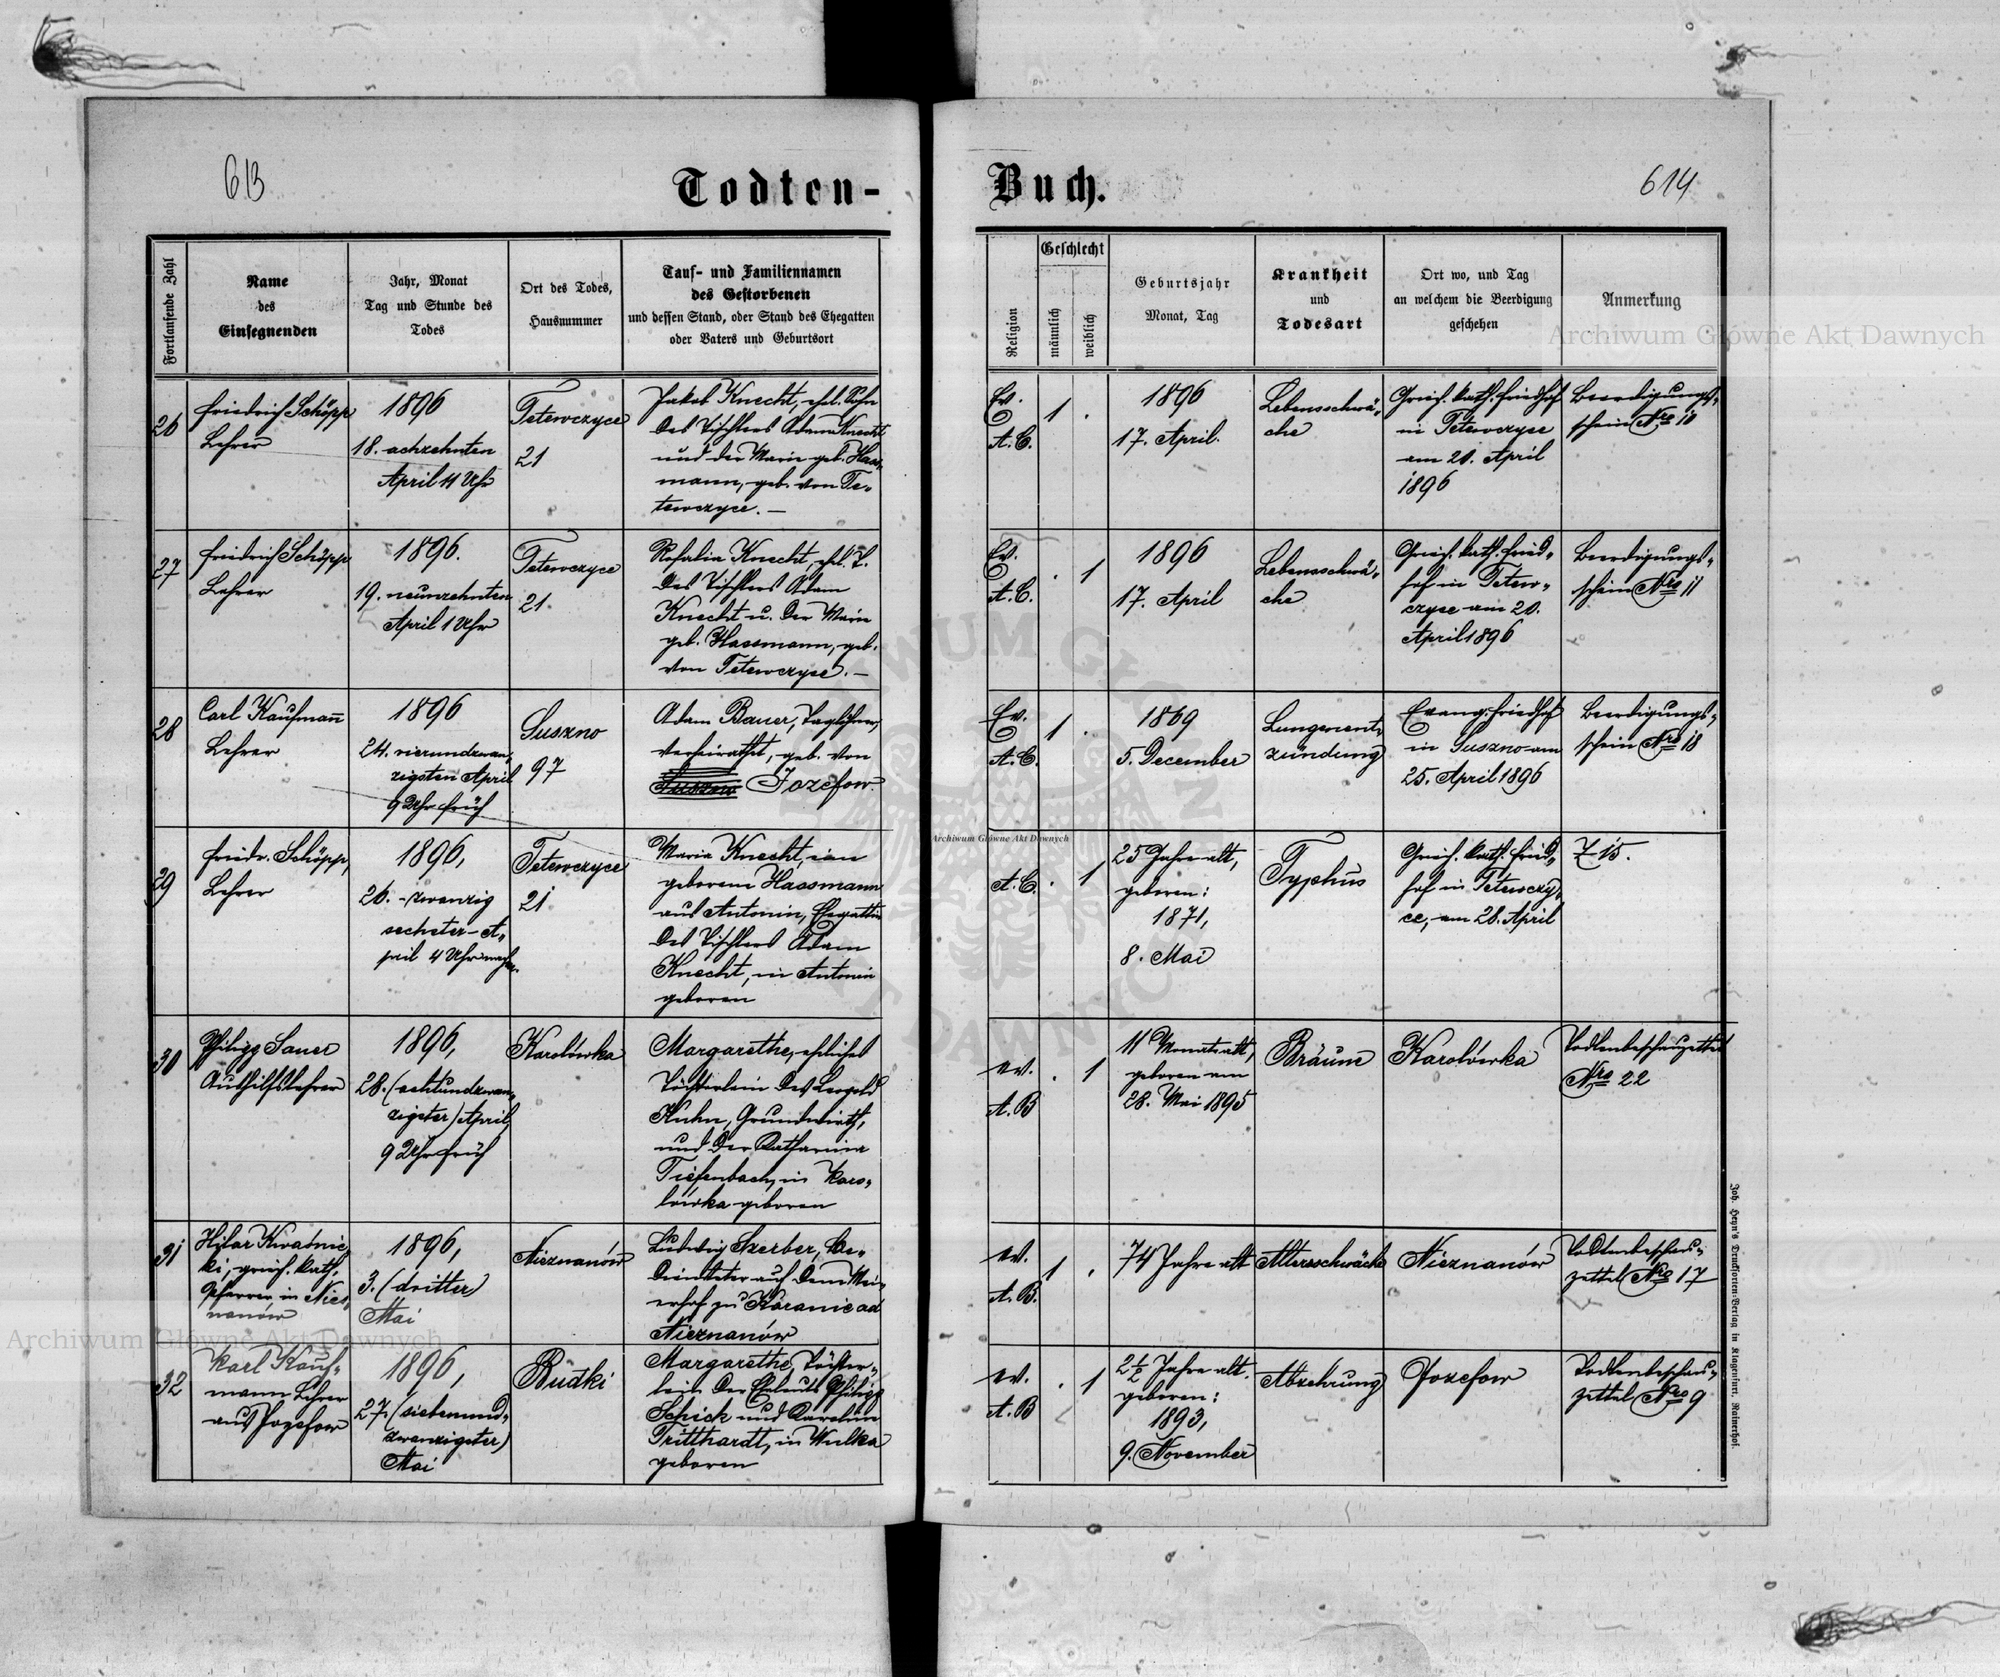 613
Todten-
Buch.
614
Fortlaufende Zahl
Name
des
Einsegnenden
Jahr, Monat
Tag und Stunde des
Todes
Ort des Todes,
Hausnummer
Tauf- und Familiennamen
des Gestorbenen
und dessen Stand, oder Stand des Ehegatten
oder Vaters und Geburtsort
Religion
Geschlecht
männlich
weiblich
Geburtsjahr
Monat, Tag
Krankheit
und
Todesart
Ort wo, und Tag
an welchem die Beerdigung
geschehen
Anmerkung
26
Friedrich Schöpp
Lehrer
1896
18. achzehnten
April 11 Uhr
Tetewczyce
21
Jakob Knecht, ehl. Sohn
des Tischlers Adam Knecht
und der Marie geb. Hass-
mann, geb. von Te-
tewczyce. —
Ev.
A. C.
1 .
1896
17. April.
Lebensschwä-
che
Griech. kath. Friedhof
in Tetewczyce
am 20. April
1896
Beerdigungs-
schein Nro 10
27
Friedrich Schöpp
Lehrer
1896.
19. neunzehnten
April 1 Uhr
Tetewczyce
21.
Rosalia Knecht, ehl. T.
des Tischlers Adam
Knecht u. der Marie
geb. Hassmann, geb.
von Tetewczyce. —
Ev.
A. C.
. 1
1896
17. April
Lebensschwä-
che
Griech. kath. Fried-
hof in Tetew-
czyce am 20.
April 1896
Beerdigungs-
schein Nro 11
28
Carl Kaufmann
Lehrer
1896
24. vierundzwan-
zigsten April
9 Uhr früh
Suszno
97
Adam Bauer, Taglöhner,
verheirathet, geb. von
Suszno Jozefow.
Ev.
A. C.
1 .
1869
5. December
Lungenent-
zündung
Evang. Friedhof
in Suszno am
25. April 1896
Beerdigungs-
schein Nro 18
29
Friedr. Schöpp,
Lehrer
1896,
26. - zwanzig
sechster - A-
pril 4 Uhr nachm.
Tetewczyce
21
Maria Knecht, eine
geborene Hassmann
aus Antonin, Ehegattin
des Tischlers Adam
Knecht, in Antonin
geboren
A. C.
. 1
25 Jahre alt,
geboren:
1871,
8. Mai
Typhus
Griech. kath. Fried-
hof in Tetewczy-
ce, am 28. April
Z 15.
30
Philipp Sauer
Aushilfslehrer
1896,
28. (achtundzwan-
zigster) April,
9 Uhr früh
Karolówka
Margarethe, eheliches
Töchterlein des Leopold
Kuhn, Grundwirth,
und der Katharina
Tiefenbach, in Karo-
lówka geboren
ev.
A. B
. 1
11 Monate alt,
geboren am
28. Mai 1895
Bräune
Karolówka
Todtenbeschauzettel
Nro 22
31
Hilar Kwaśnic-
ki, griech. kath.
Pfarrer in Niez-
nanów
1896,
3. (dritter)
Mai
Nieznanów
Ludwig Szerber, Be-
diensteter auf dem Mei-
erhof zu Köranie ad
Nieznanów
ev.
A. B.
1 .
74 Jahre alt
Altersschwäche
Nieznanów
Todtenbeschau-
zettel Nro 17
32
Karl Kauf-
mann Lehrer
aus Jozefow
1896,
27. (siebenund-
zwanzigster)
Mai
Budki
Margarethe, Töchter-
lein der Eheleute Philipp
Schick und Karoline
Tritthardt, in Wulka
geboren
ev.
A. B
. 1
2 1/2 Jahre alt.
geboren:
1893,
9. November
Abzehrung
Jozefow
Todtenbeschau-
zettel Nro 9
Joh. Heyn's Drucksorten-Verlag in Klagenfurt, Rainerhof.
Archiwum Główne Akt Dawnych
Archiwum Główne Akt Dawnych
Archiwum Główne Akt Dawnych